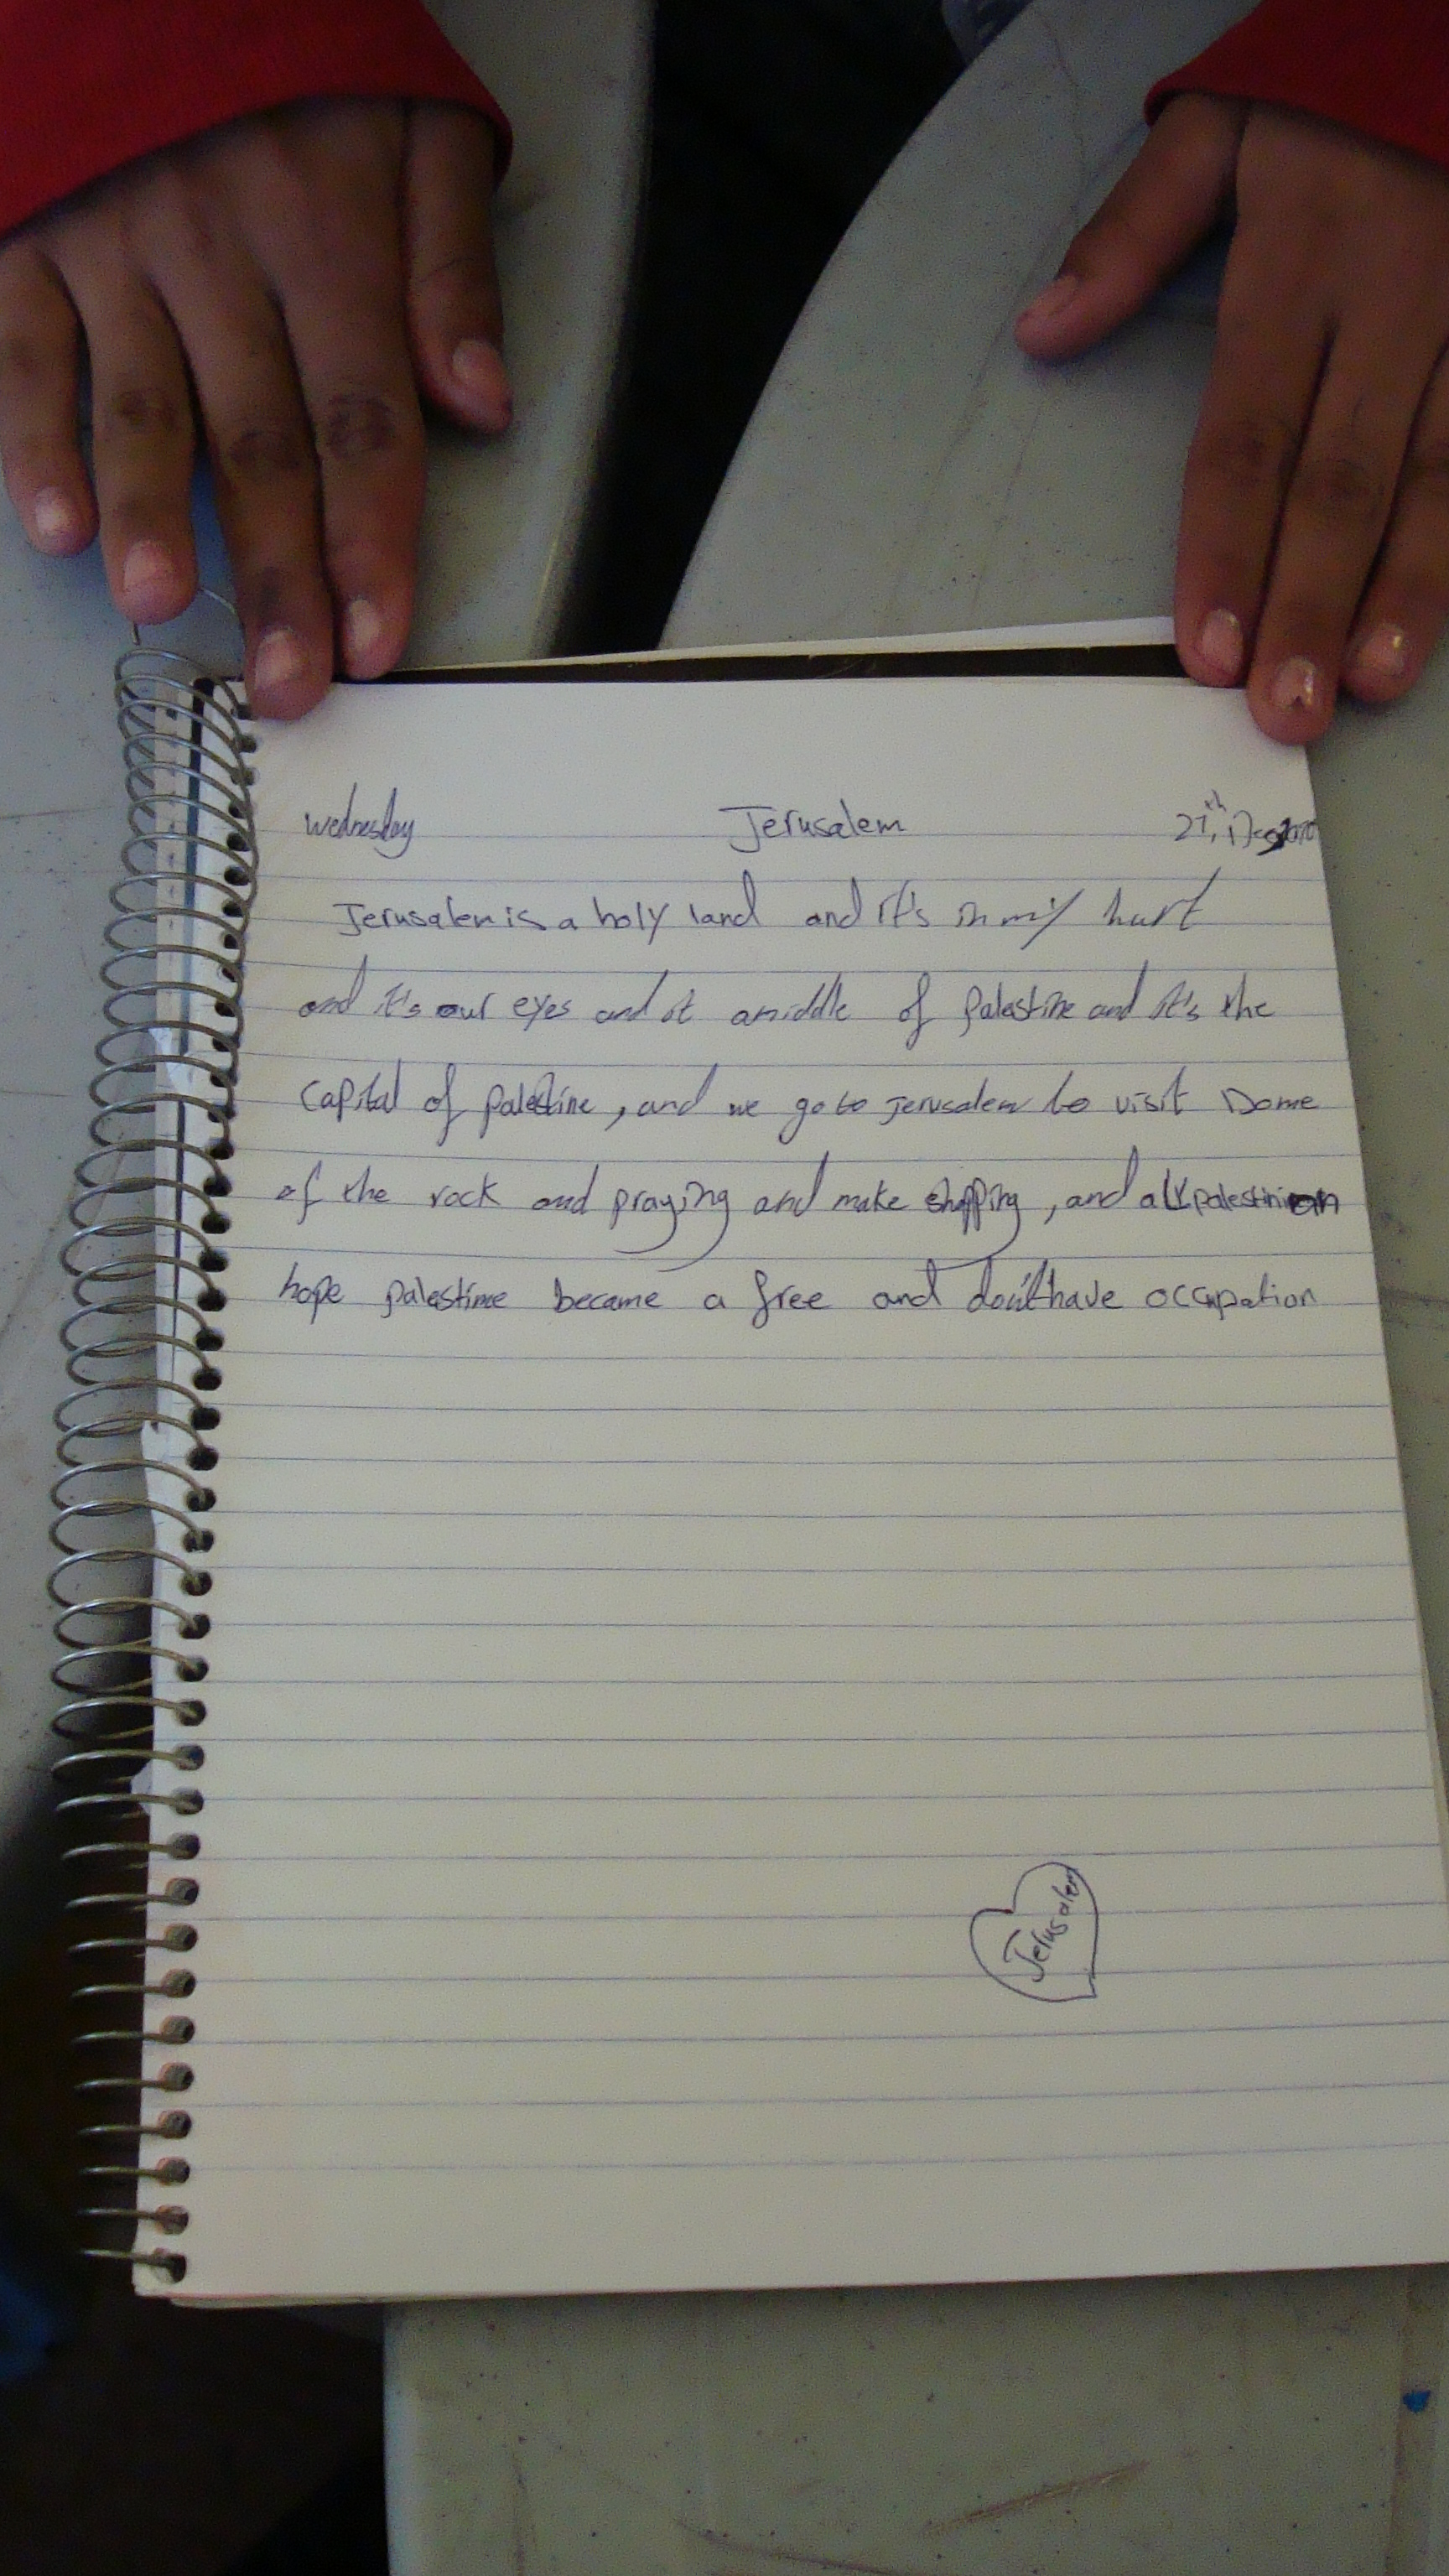 wednesday Jerusalem 21th, Dec
Jerusalem is a holy land and it's in my hurt
and it's our eyes and it amiddle of palestine and it's the
capital of palestine, and we go to Jerusalem to visit Dome
of the rock and praying and make shopping, and all palestinian
hope palestine became a free and don't have occupation
Jerusalem